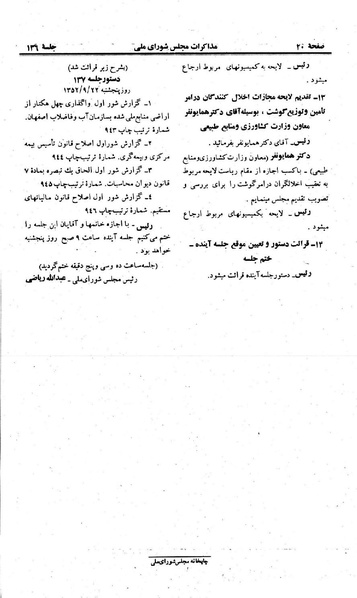 صفحهٔ ۲۰
مذاکرات مجلس شورای ملی
جلسهٔ ۱۳۹
رئیس ـ لایحه به کمیسیونهای مربوط ارجاع
میشود.
۱۳ـ تقدیم لایحه مجازات اخلال کنندگان در امر
تأمین وتوزیع گوشت، بوسیله آقای دکترهمایونفر
معاون وزارت کشاورزی ومنابع طبیعی
رئیس ـ آقای دکترهمایونفر بفرمائید.
دکترهمایونفر (معاون وزارت کشاورزی ومنابع
طبیعی) ـ باکسب اجازه از مقام ریاست لایحه مربوط
به تعقیب اخلالگران درامرگوشت را برای بررسی و
تصویب تقدیم مجلس مینمایم.
رئیس ـ لایحه بکمیسیونهای مربوط ارجاع
میشود.
۱۴ـ قرائت دستور و تعیین موقع جلسه آینده ـ
ختم جلسه
رئیس ـ دستورجلسه آینده قرائت میشود.
(بشرح زیر قرائت شد)
دستورجلسه ۱۳۷
روزپنجشنبه ۱۳۵۲/۹/۲۲
۱ـ گزارش شور اول واگذاری چهل هکتار از
اراضی منابع‌ملی شده بسازمان‌آب وفاضلاب اصفهان.
شمارهٔ ترتیب چاپ ۹۴۳
۲ـ گزارش شوراول اصلاح قانون تأسیس بیمه
مرکزی وبیمه‌گری. شمارهٔ ترتیب‌چاپ ۹۴۴
۳ـ گزارش شور اول الحاق یک تبصره بمادهٔ ۷
قانون دیوان محاسبات. شمارهٔ ترتیب‌چاپ ۹۴۵
۴ـ گزارش شور اول اصلاح قانون مالیاتهای
مستقیم. شمارهٔ ترتیب‌چاپ ۹۴۶
رئیس ـ با اجازه خانمها و آقایان این جلسه را
ختم می‌کنیم جلسه آینده ساعت ۹ صبح روز پنجشنبه
خواهد بود.
(جلسه‌ساعت ده وسی وپنج دقیقه ختم‌گردید)
رئیس مجلس شورای ملی ـ عبدالله ریاضی
چاپخانه مجلس شورای ملی